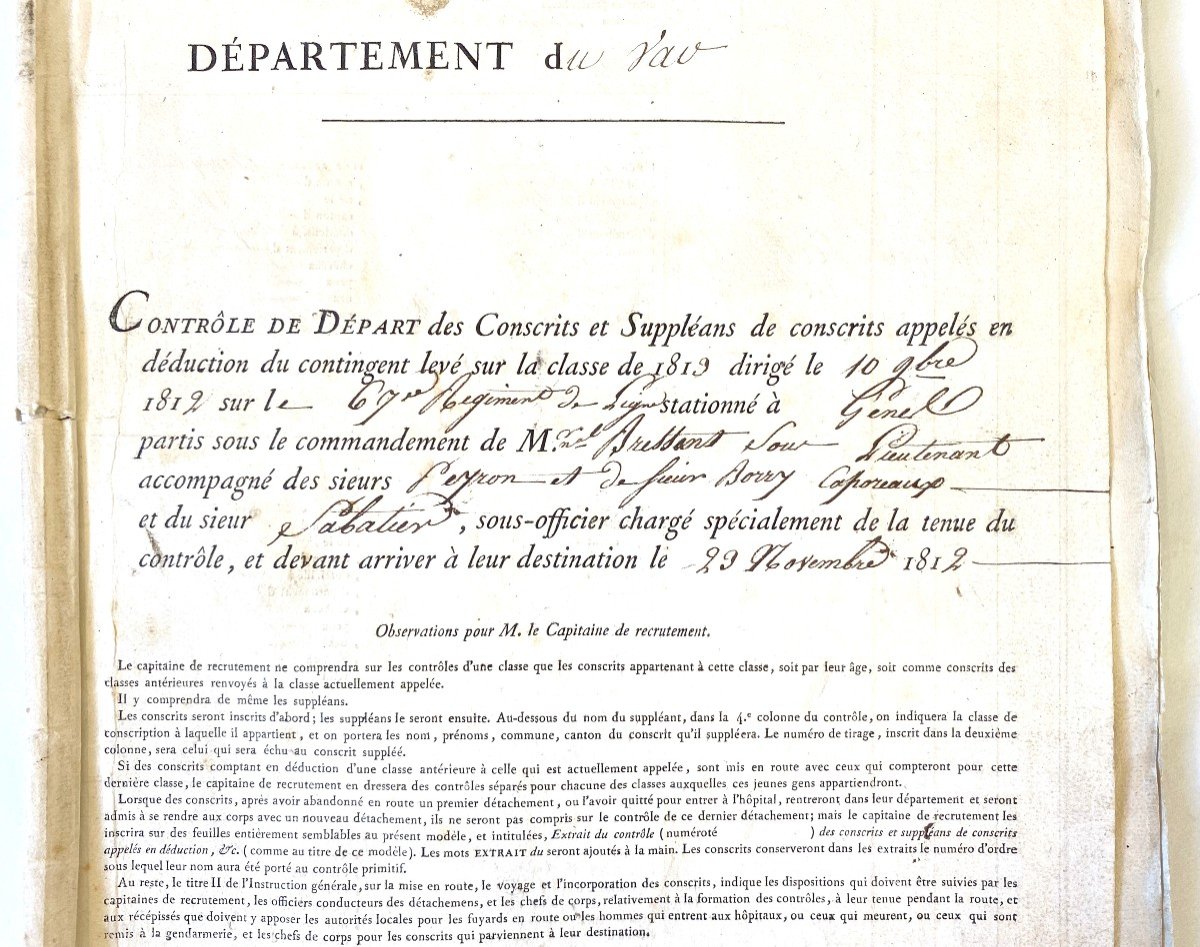 DÉPARTEMENT du Var
CONTRÔLE DE DÉPART des Conscrits et Suppléans de conscrits appelés en
déduction du contingent levé sur la classe de 1813 dirigé le 10 9bre
1812 sur le 67me Regiment de Ligne stationné à
partis sous le commandement de M. Bressant Sous Lieutenant
accompagné des sieurs Peyron et de sieur Borry Caporeaux
et du sieur Sabatier, sous-officier chargé spécialement de la tenue du
contrôle, et devant arriver à leur destination le 29 Novembre 1812
Observations pour M. le Capitaine de recrutement.
Le capitaine de recrutement ne comprendra sur les contrôles d'une classe que les conscrits appartenant à cette classe, soit par leur âge, soit comme conscrits des
classes antérieures renvoyés à la classe actuellement appelée.
Il y comprendra de même les suppléans.
Les conscrits seront inscrits d'abord; les suppléans le seront ensuite. Au-dessous du nom du suppléant, dans la 4.e colonne du contrôle, on indiquera la classe de
conscription à laquelle il appartient, et on portera les nom, prénoms, commune, canton du conscrit qu'il suppléera. Le numéro de tirage, inscrit dans la deuxième
colonne, sera celui qui sera échu au conscrit suppléé.
Si des conscrits comptant en déduction d'une classe antérieure à celle qui est actuellement appelée, sont mis en route avec ceux qui compteront pour cette
dernière classe, le capitaine de recrutement en dressera des contrôles séparés pour chacune des classes auxquelles ces jeunes gens appartiendront.
Lorsque des conscrits, après avoir abandonné en route un premier détachement, ou l'avoir quitté pour entrer à l'hôpital, rentreront dans leur département et seront
admis à se rendre aux corps avec un nouveau détachement, ils ne seront pas compris sur le contrôle de ce dernier détachement; mais le capitaine de recrutement les
inscrira sur des feuilles entièrement semblables au présent modèle, et intitulées, Extrait du contrôle (numéroté ) des conscrits et suppléans de conscrits
appelés en déduction, &c. (comme au titre de ce modèle). Les mots EXTRAIT du seront ajoutés à la main. Les conscrits conserveront dans les extraits le numéro d'ordre
sous lequel leur nom aura été porté au contrôle primitif.
Au reste, le titre II de l'Instruction générale, sur la mise en route, le voyage et l'incorporation des conscrits, indique les dispositions qui doivent être suivies par les
capitaines de recrutement, les officiers conducteurs des détachemens, et les chefs de corps, relativement à la formation des contrôles, à leur tenue pendant la route, et
aux récépissés que doivent y apposer les autorités locales pour les fuyards en route ou les hommes qui entrent aux hôpitaux, ou ceux qui meurent, ou ceux qui sont
remis à la gendarmerie, et les chefs de corps pour les conscrits qui parviennent à leur destination.